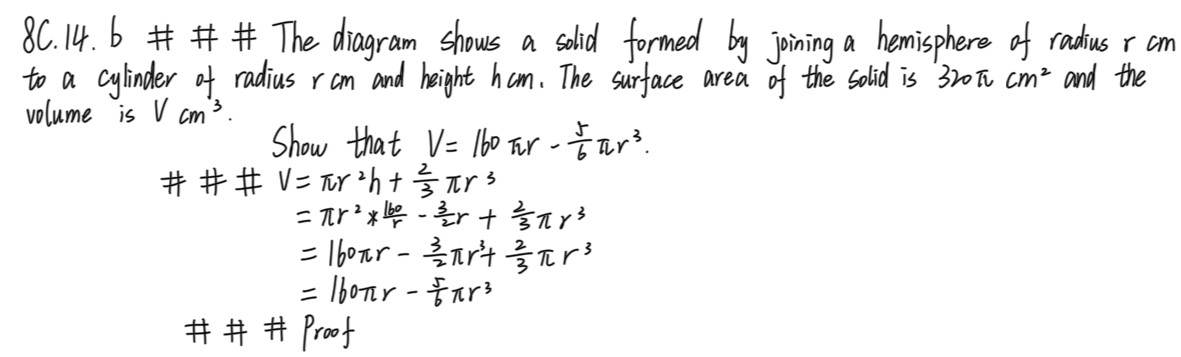 8C.14. b # # # The diagram shows a solid formed by joining a hemisphere of radius r cm
to a cylinder of radius r cm and height h cm. The surface area of the solid is 320π cm² and the
volume is V cm³.
Show that V = 160 πr - 5/6 πr³.
# # # V = πr²h + 2/3 πr³
= πr² * 160/r - 3/2 r + 2/3 πr³
= 160πr - 3/2 πr³ + 2/3 πr³
= 160πr - 5/6 πr³
# # # Proof